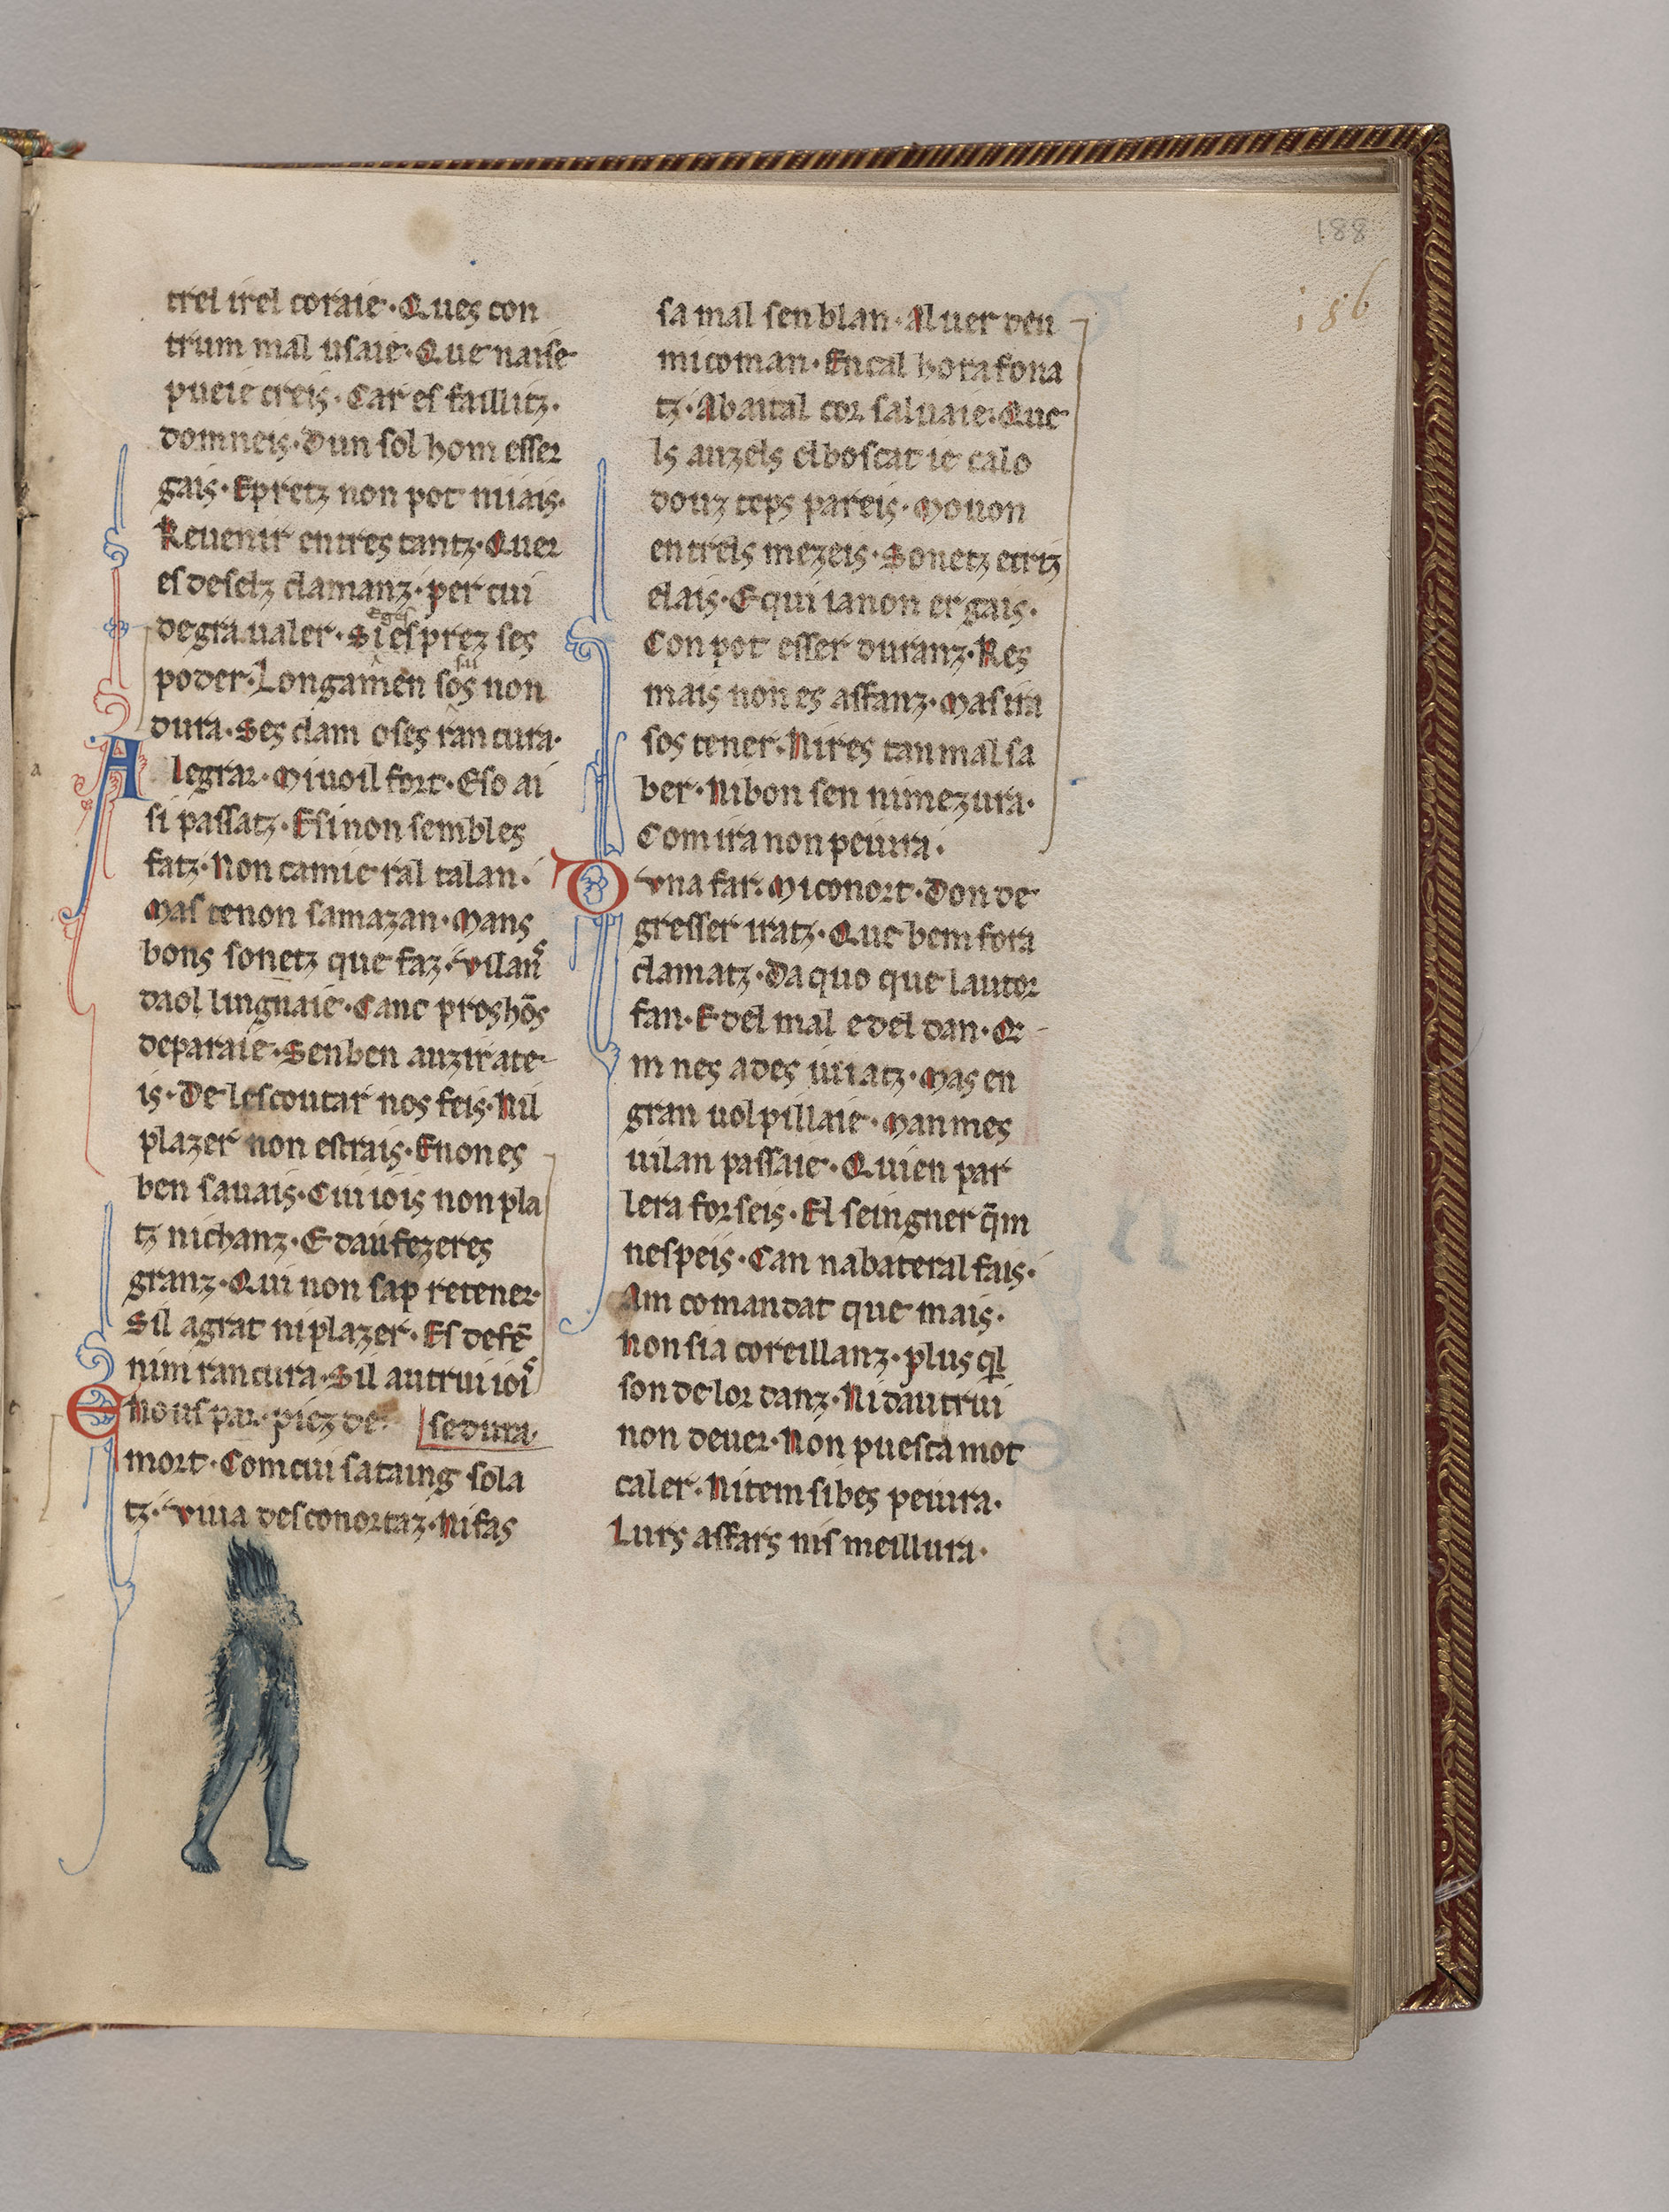 188
186
trel irel coraie · Ques con
trum mal usaie · Que naise
pueie creis · Car es faillitz ·
domneis · Dun sol hom esser
gais · Epretz non pot miais ·
Reuenir entres tantz · Quer
es deselz clamanz · per cui
degra ualer · Si es prez ses
poder · Longamen sos non
dura · Ses clam o ses rancura ·
Alegrar · Mi uoil fort · Eso ai
si passatz · E si non sembles
fatz · Non camie ral talan ·
Mas tenon samazan · Mans
bons sonetz que faz · Vilans
daol lingnaie · Canc pros hōs
deparaie · Senben auzir ate
is · De lescoutar nos feis · Nil
plazer non estrais · Enon es
ben sauais · Cui iois non pla
tz ni chanz · E daufezeres
granz · Qui non sap retener
Sil agrat ni plazer · Es defē
nimi rancura · Sil autrui ioi
se dura ·
E nous par · piez de
mort · Com cui sataing sola
tz · Viua desconortaz · Ni fas
sa mal senblan · Al uer deu
mi coman · En cal hora fo na
tz · Ab aital cor saluaie · Que
ls auzels el boscatie calo
douz teps pareis · Mouon
entrels mezeis · Sonetz ecritz
elais · E qui ia non er gais ·
Con pot esser duranz · Res
mais non es affanz · Mas ira
sostener · Ni res tan mal sa
ber · Ni bon sen ni mezura ·
Com ira non peiura ·
Duna far · Mi conort · Don de
gresser iratz · Que bem fora
clamatz · Da quo que lautor
fan · E del mal e del dan · Qr
m nes ades uiatz · Mas en
gran uolpillaie · Man mes
uilan passaie · Qui en par
lera forseis · El seingner q̄m
nespeis · Can nabateral fais ·
Am comandat que mais ·
Non sia coreillanz · plus ql
son de lor danz · Ni dautrui
non deuer · Non puesca mot
caler · Ni tem si bes peiura ·
Lurs affars nis meillura ·